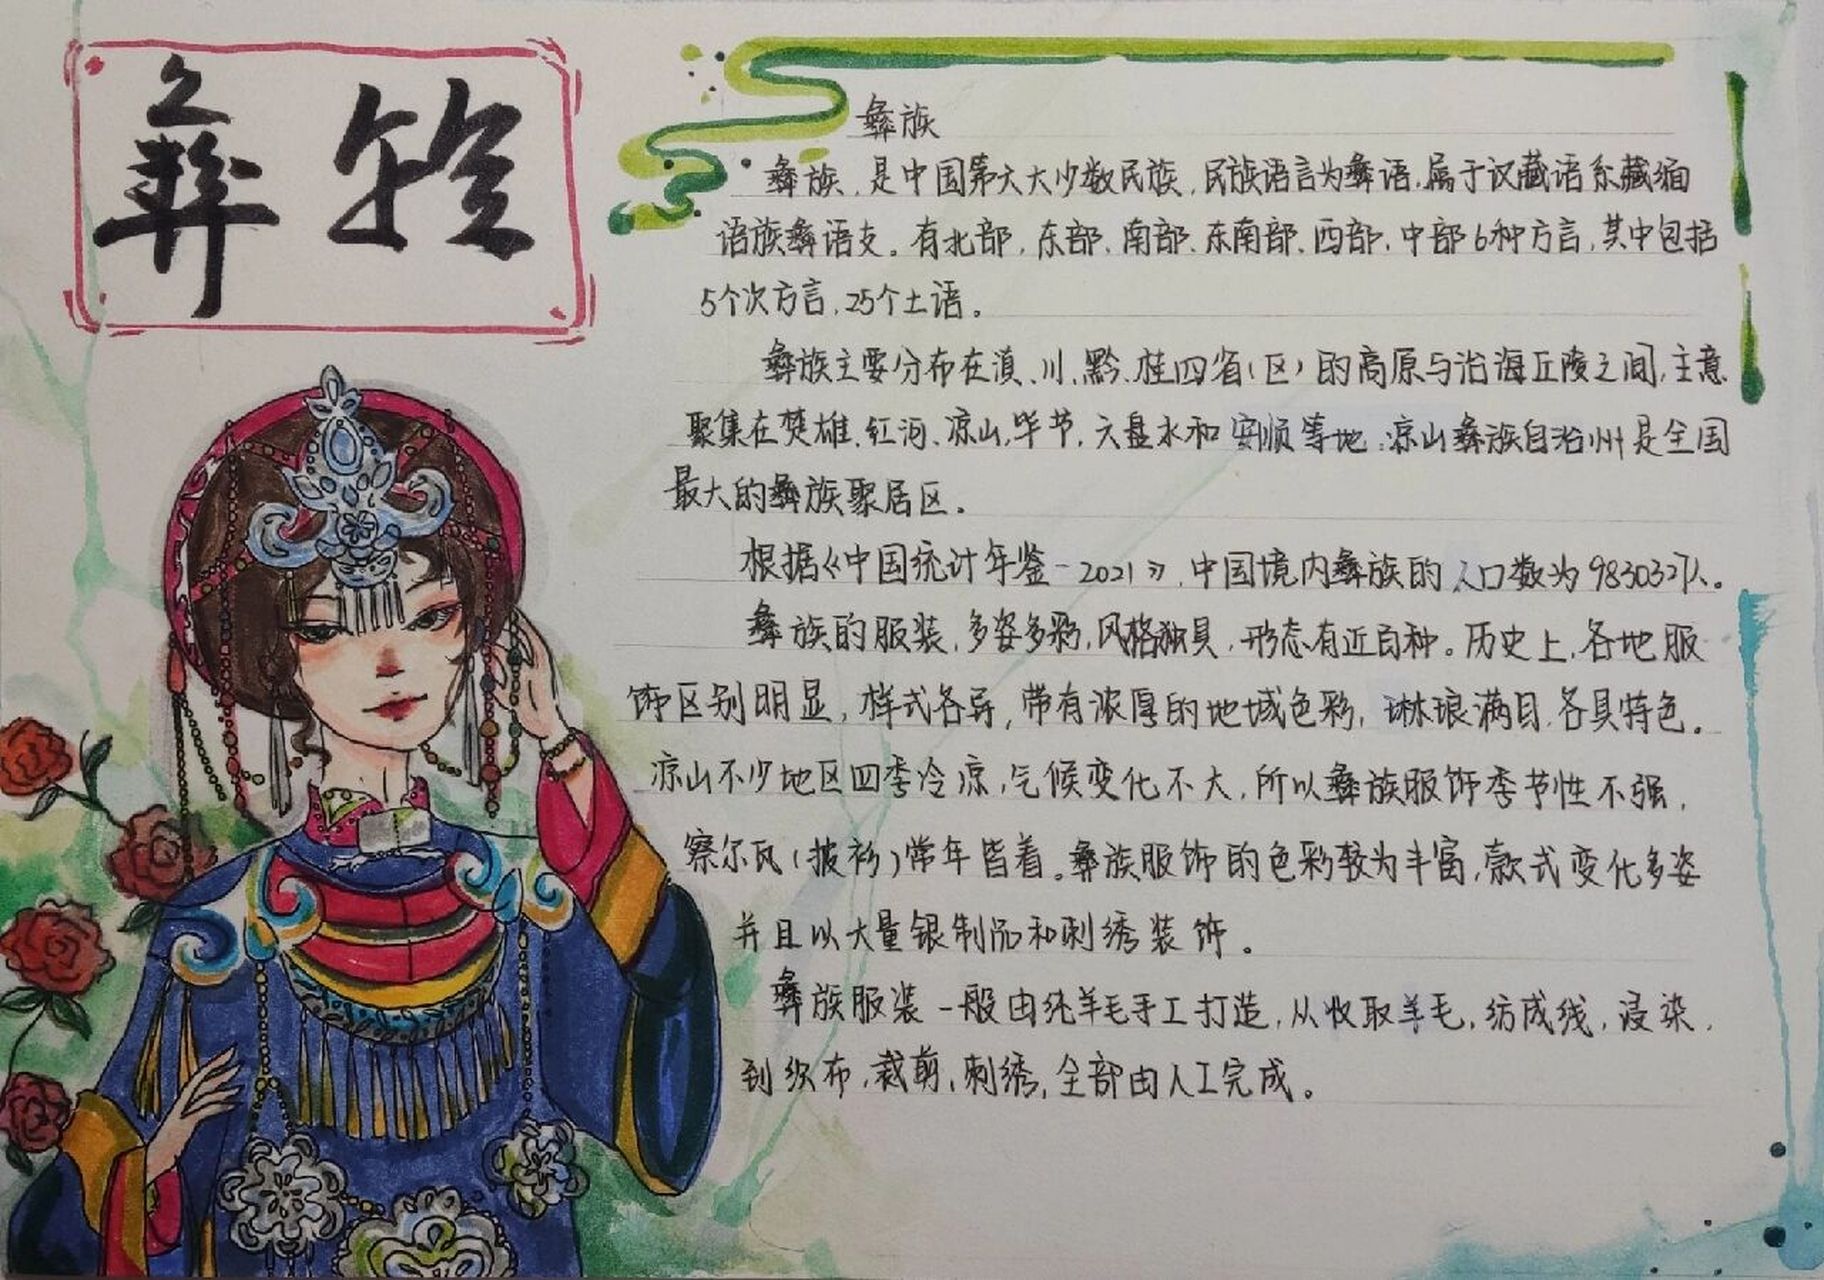 彝族
彝族，是中国第六大少数民族，民族语言为彝语，属于汉藏语系藏缅
语族彝语支。有北部，东部、南部、东南部、西部、中部6种方言，其中包括
5个次方言，25个土语。
彝族主要分布在滇、川、黔、桂四省（区）的高原与沿海丘陵之间，主意
聚集在楚雄、红河、凉山、毕节、六盘水和安顺等地，凉山彝族自治州是全国
最大的彝族聚居区。
根据《中国统计年鉴-2021》，中国境内彝族的人口数为9830327人。
彝族的服装，多姿多彩，风格独具，形态有近百种。历史上，各地服
饰区别明显，样式各异，带有浓厚的地域色彩，琳琅满目，各具特色。
凉山不少地区四季冷凉，气候变化不大，所以彝族服饰季节性不强，
察尔瓦（披衫）常年皆着。彝族服饰的色彩较为丰富，款式变化多姿
并且以大量银制品和刺绣装饰。
彝族服装一般由纯羊毛手工打造，从收取羊毛，纺成线，浸染，
到织布，裁剪，刺绣，全部由人工完成。